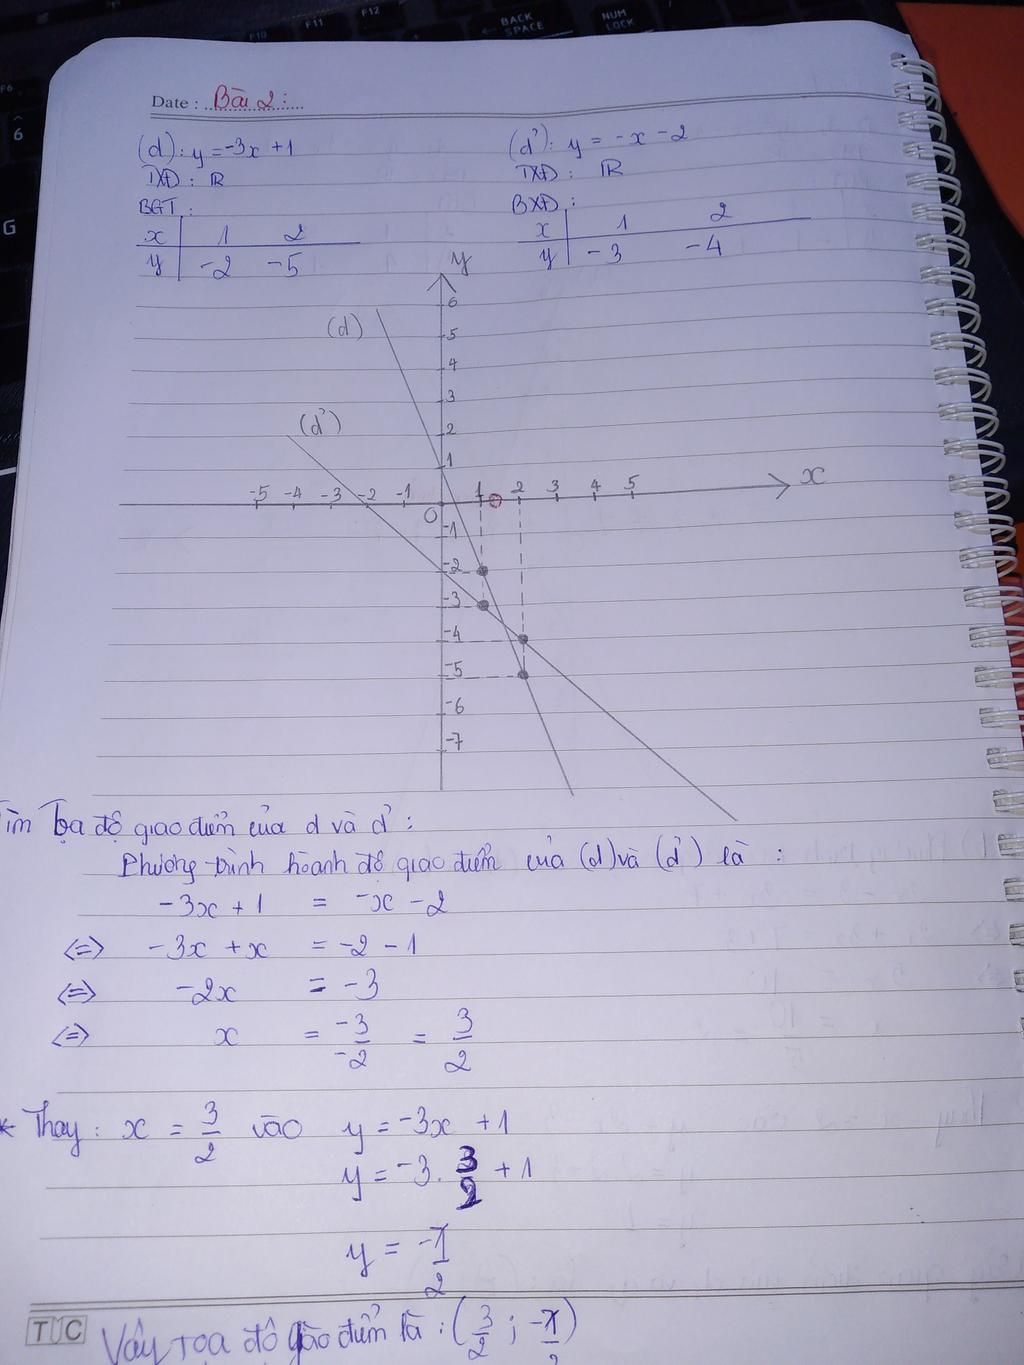 F10 F11 F12 BACK SPACE NUM LOCK
F6
6
G
Date : Bài 2 :
(d) : y = -3x + 1 (d'): y = -x - 2
TXĐ : ℝ TXĐ : ℝ
BGT : BXĐ :
x 1 2 x 1 2
y -2 -5 y -3 -4
y
6
(d) 5
4
3
(d') 2
1
-5 -4 -3 -2 -1 1 2 3 4 5 x
O
-1
-2
-3
-4
-5
-6
-7
Tìm Tọa độ giao điểm của d và d' :
Phương trình hoành độ giao điểm của (d) và (d') là :
-3x + 1 = -x - 2
<=> -3x + x = -2 - 1
<=> -2x = -3
<=> x = -3/-2 = 3/2
* Thay : x = 3/2 vào y = -3x + 1
y = -3 . 3/2 + 1
y = -7/2
TUC Vậy tọa độ giao điểm là : (3/2 ; -7/2)